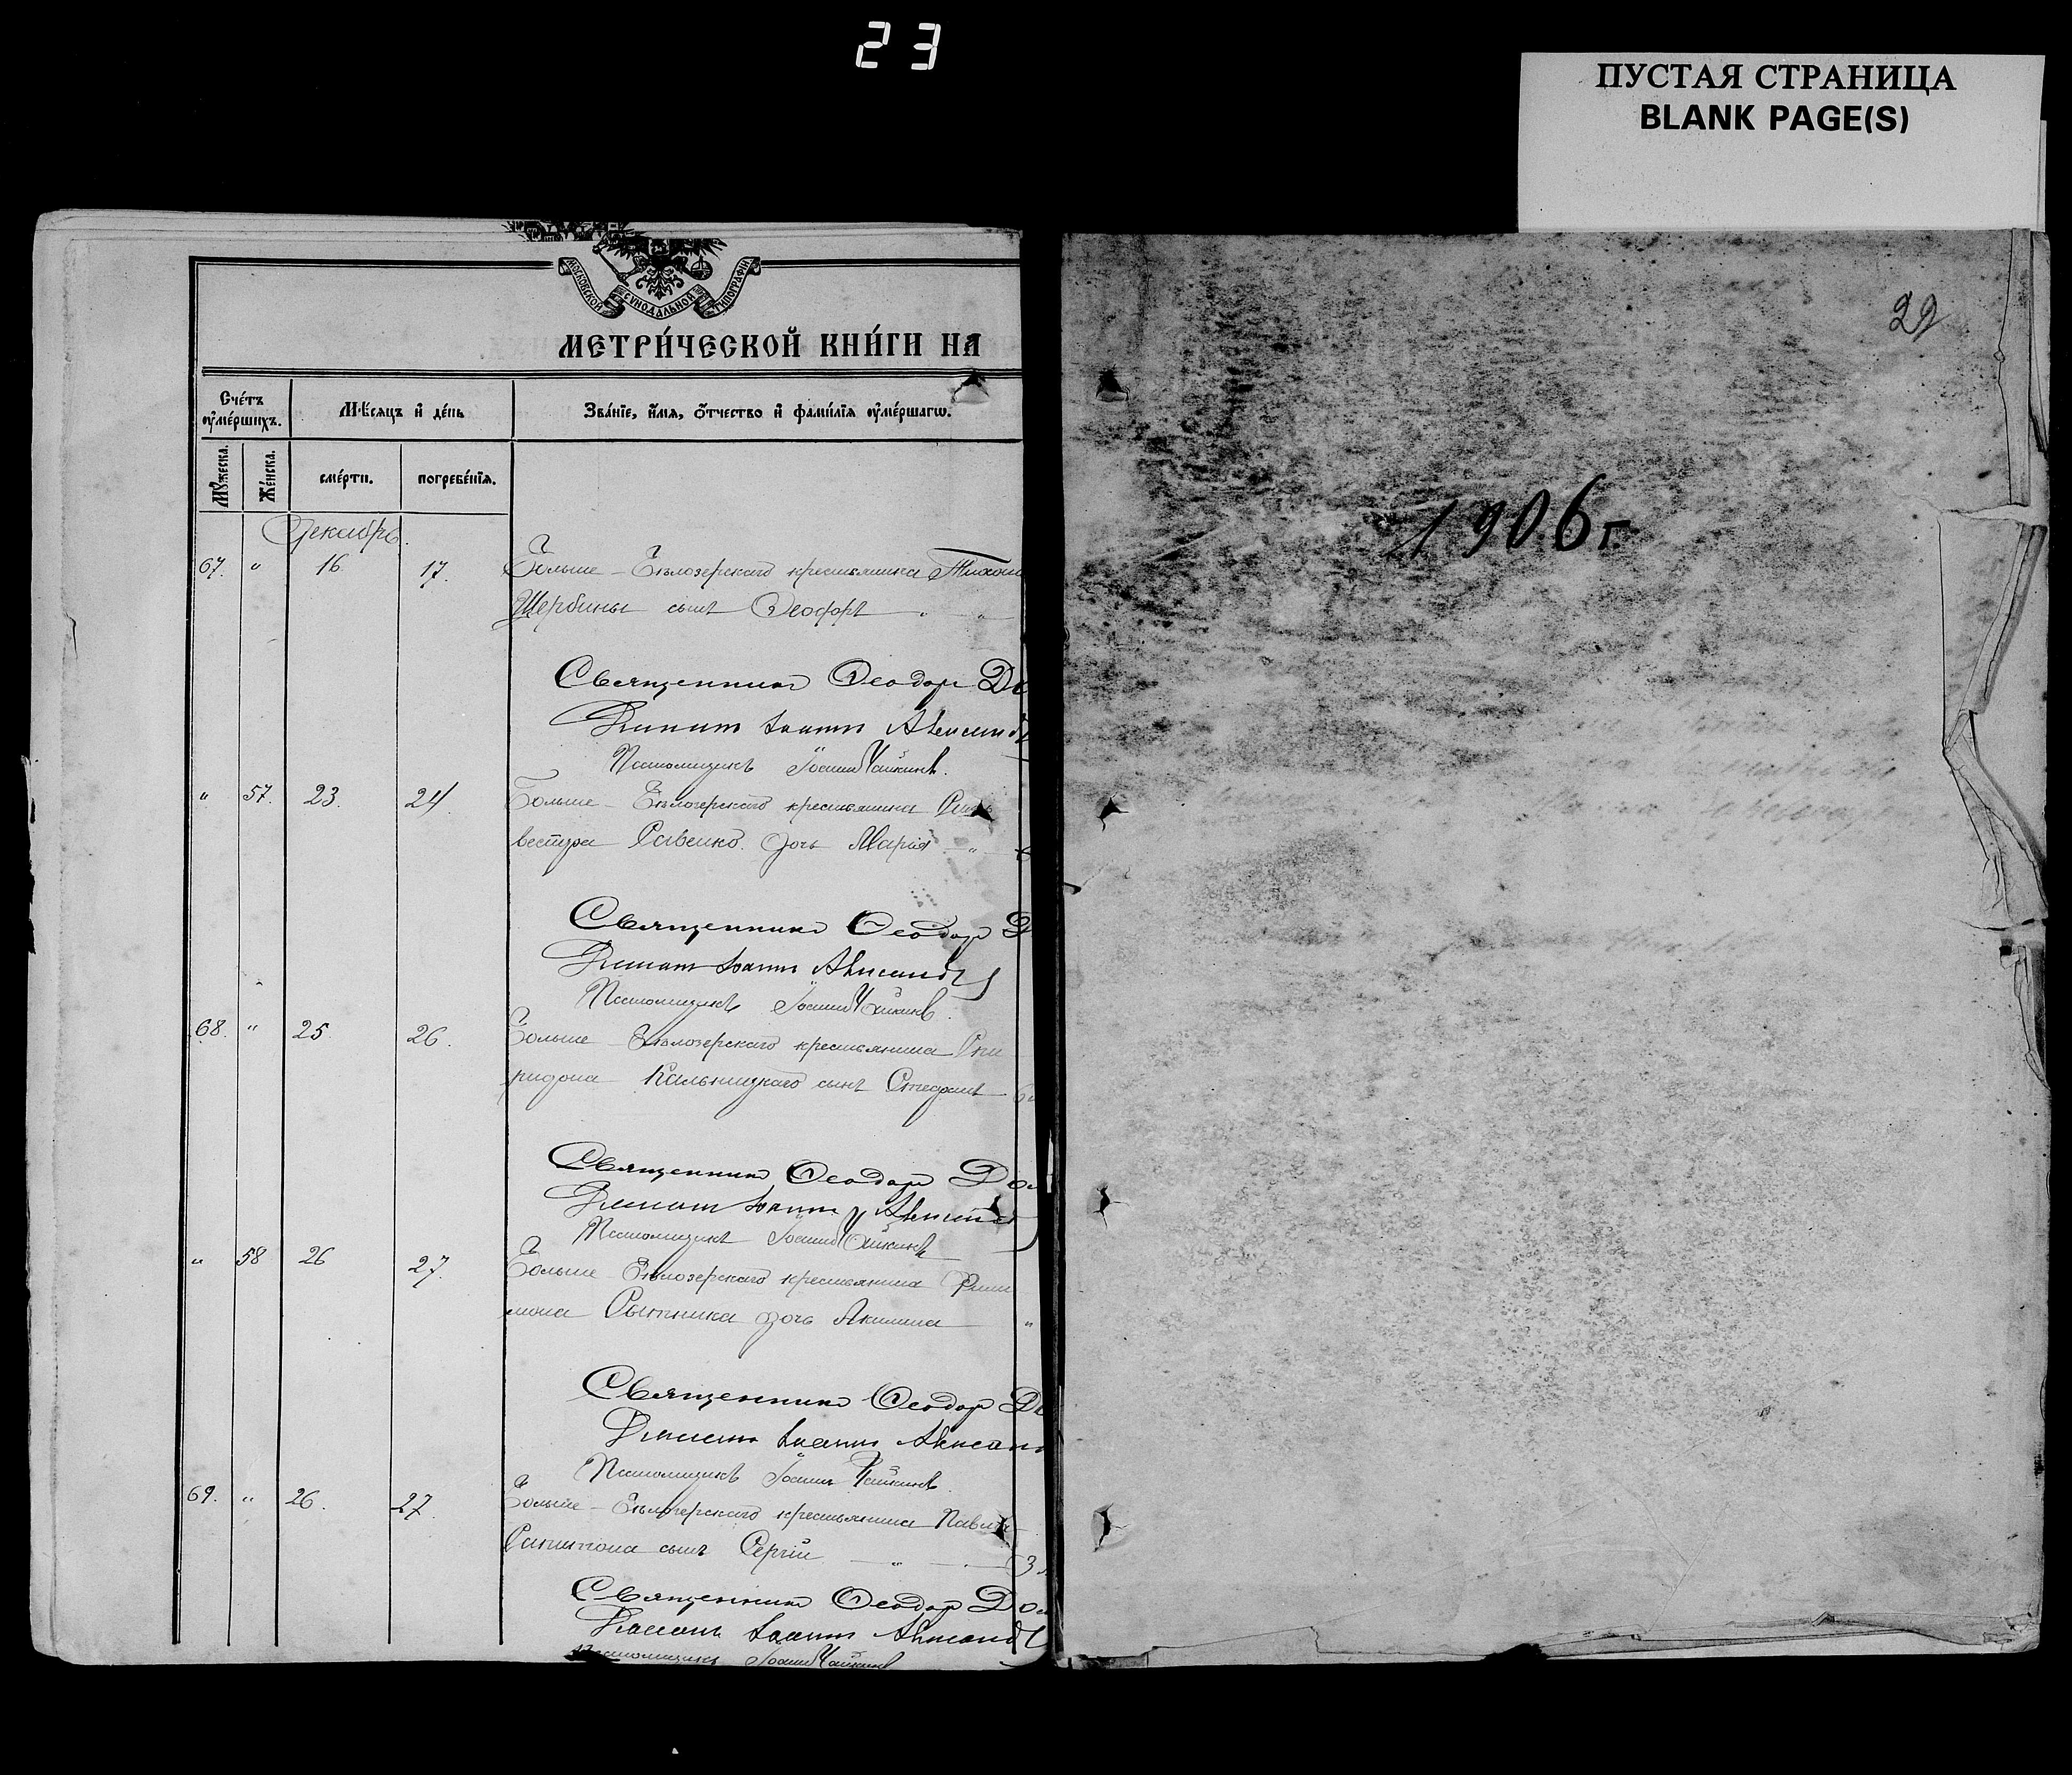 23
ПУСТАЯ СТРАНИЦА
BLANK PAGE(S)
МОСКОВСКОЙ СѴНОДАЛЬНОЙ ТИПОГРАФІИ
МЕТРИ́ЧЕСКОЙ КНИ́ГИ НА
Сче́тъ ᲂу҆ме́ршихъ.
Мѣ́сяцъ и҆ де́нь
Зва́нїе, и҆́мя, ѻ҆́тчество и҆ фами́лїя ᲂу҆ме́ршагѡ.
Мꙋ́жеска.
Же́нска.
сме́рти.
погребе́нїя.
Декабрь.
67. " 16 17. Больше-Бѣлозерскаго крестьянина Тихона
Щербины сынъ " "
Священникъ Ѳеодоръ
Діаконъ Іоаннъ
Псаломщикъ Іоаннъ Чайкинъ.
" 57. 23. 24. Больше-Бѣлозерскаго крестьянина Сель
вестра Савенко дочь Марія "
Священникъ Ѳеодоръ
Діаконъ Іоаннъ
Псаломщикъ Іоаннъ Чайкинъ.
68. " 25 26. Больше-Бѣлозерскаго крестьянина Спи
ридона Кальницкаго сынъ Стефанъ
Священникъ Ѳеодоръ
Діаконъ Іоаннъ
Псаломщикъ Іоаннъ Чайкинъ
" 58 26 27. Больше-Бѣлозерскаго крестьянина Фили
мона Сытника дочь Акилина "
Священникъ Ѳеодоръ
Діаконъ Іоаннъ
Псаломщикъ Іоаннъ Чайкинъ.
69. " 26. 27. Больше-Бѣлозерскаго крестьянина Павла
сынъ Сергій "
Священникъ Ѳеодоръ
Діаконъ Іоаннъ
Псаломщикъ Іоаннъ Чайкинъ
29
1906 г